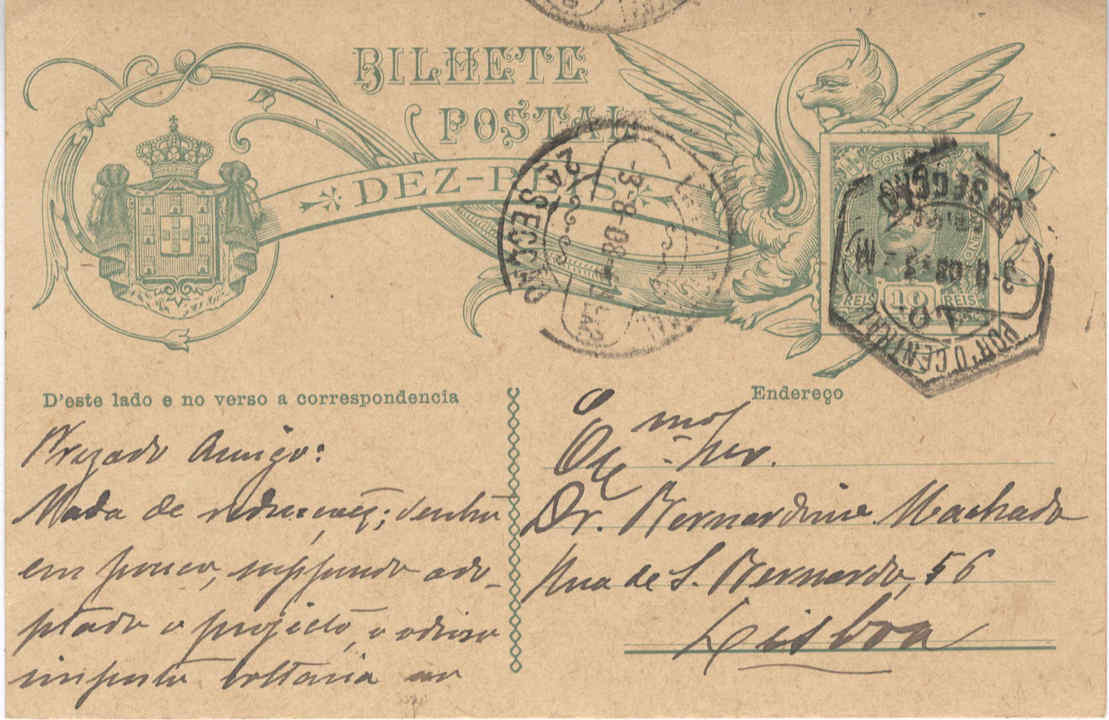 BILHETE
POSTAL
DEZ-REIS
CORREIOS
REIS 10 REIS
2ª SECÇÃO
3-8-08
SECÇÃO
PORTO CENTRAL
D'este lado e no verso a correspondencia
Endereço
Prezado Amigo:
Nada de reducções; dentro
em pouco, suppondo ado-
ptado o projecto, o odioso
imposto voltaria ao
Exmo Snr.
Dr. Bernardino Machado
Rua de S. Bernardo, 56
Lisboa